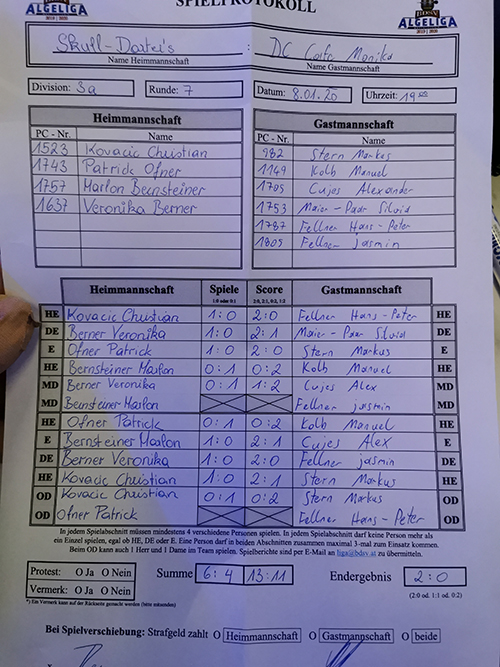 SPIELPROTOKOLL
ALGELIGA
ALGELIGA
Skull-Darter's : DC Cafe Monika
Name Heimmannschaft Name Gastmannschaft
Division: 3a Runde: 7 Datum: 8.01.20 Uhrzeit: 19 00
Heimmannschaft Gastmannschaft
PC - Nr. Name PC - Nr. Name
1523 Kovacic Christian 982 Stern Markus
1743 Patrick Ofner 1149 Kolb Manuel
1757 Marlon Bernsteiner 1705 Cujes Alexander
1637 Veronika Berner 1753 Maier-Paar Silvia
1787 Fellner Hans-Peter
1809 Fellner Jasmin
Heimmannschaft Spiele Score Gastmannschaft
1:0 oder 0:1 2:0, 2:1, 0:2, 1:2
HE Kovacic Christian 1:0 2:0 Fellner Hans-Peter HE
DE Berner Veronika 1:0 2:1 Maier-Paar Silvia DE
E Ofner Patrick 1:0 2:0 Stern Markus E
HE Bernsteiner Marlon 0:1 0:2 Kolb Manuel HE
MD Berner Veronika 0:1 1:2 Cujes Alex MD
MD Bernsteiner Marlon Fellner Jasmin MD
HE Ofner Patrick 0:1 0:2 Kolb Manuel HE
E Bernsteiner Marlon 1:0 2:1 Cujes Alex E
DE Berner Veronika 1:0 2:0 Fellner Jasmin DE
HE Kovacic Christian 1:0 2:1 Stern Markus HE
OD Kovacic Christian 0:1 0:2 Stern Markus OD
OD Ofner Patrick Fellner Hans-Peter OD
In jedem Spielabschnitt müssen mindestens 4 verschiedene Personen spielen. In jedem Spielabschnitt darf keine Person mehr als
ein Einzel spielen, egal ob HE, DE oder E. Eine Person darf in beiden Abschnitten zusammen maximal 3-mal zum Einsatz kommen.
Beim OD kann auch 1 Herr und 1 Dame im Team spielen. Spielberichte sind per E-Mail an liga@bdsv.at zu übermitteln.
Protest: O Ja O Nein Summe 6:4 13:11 Endergebnis 2:0
Vermerk: O Ja O Nein (2:0 od. 1:1 od. 0:2)
*) Ein Vermerk kann auf der Rückseite gemacht werden (bitte mitsenden)
Bei Spielverschiebung: Strafgeld zahlt O Heimmannschaft O Gastmannschaft O beide